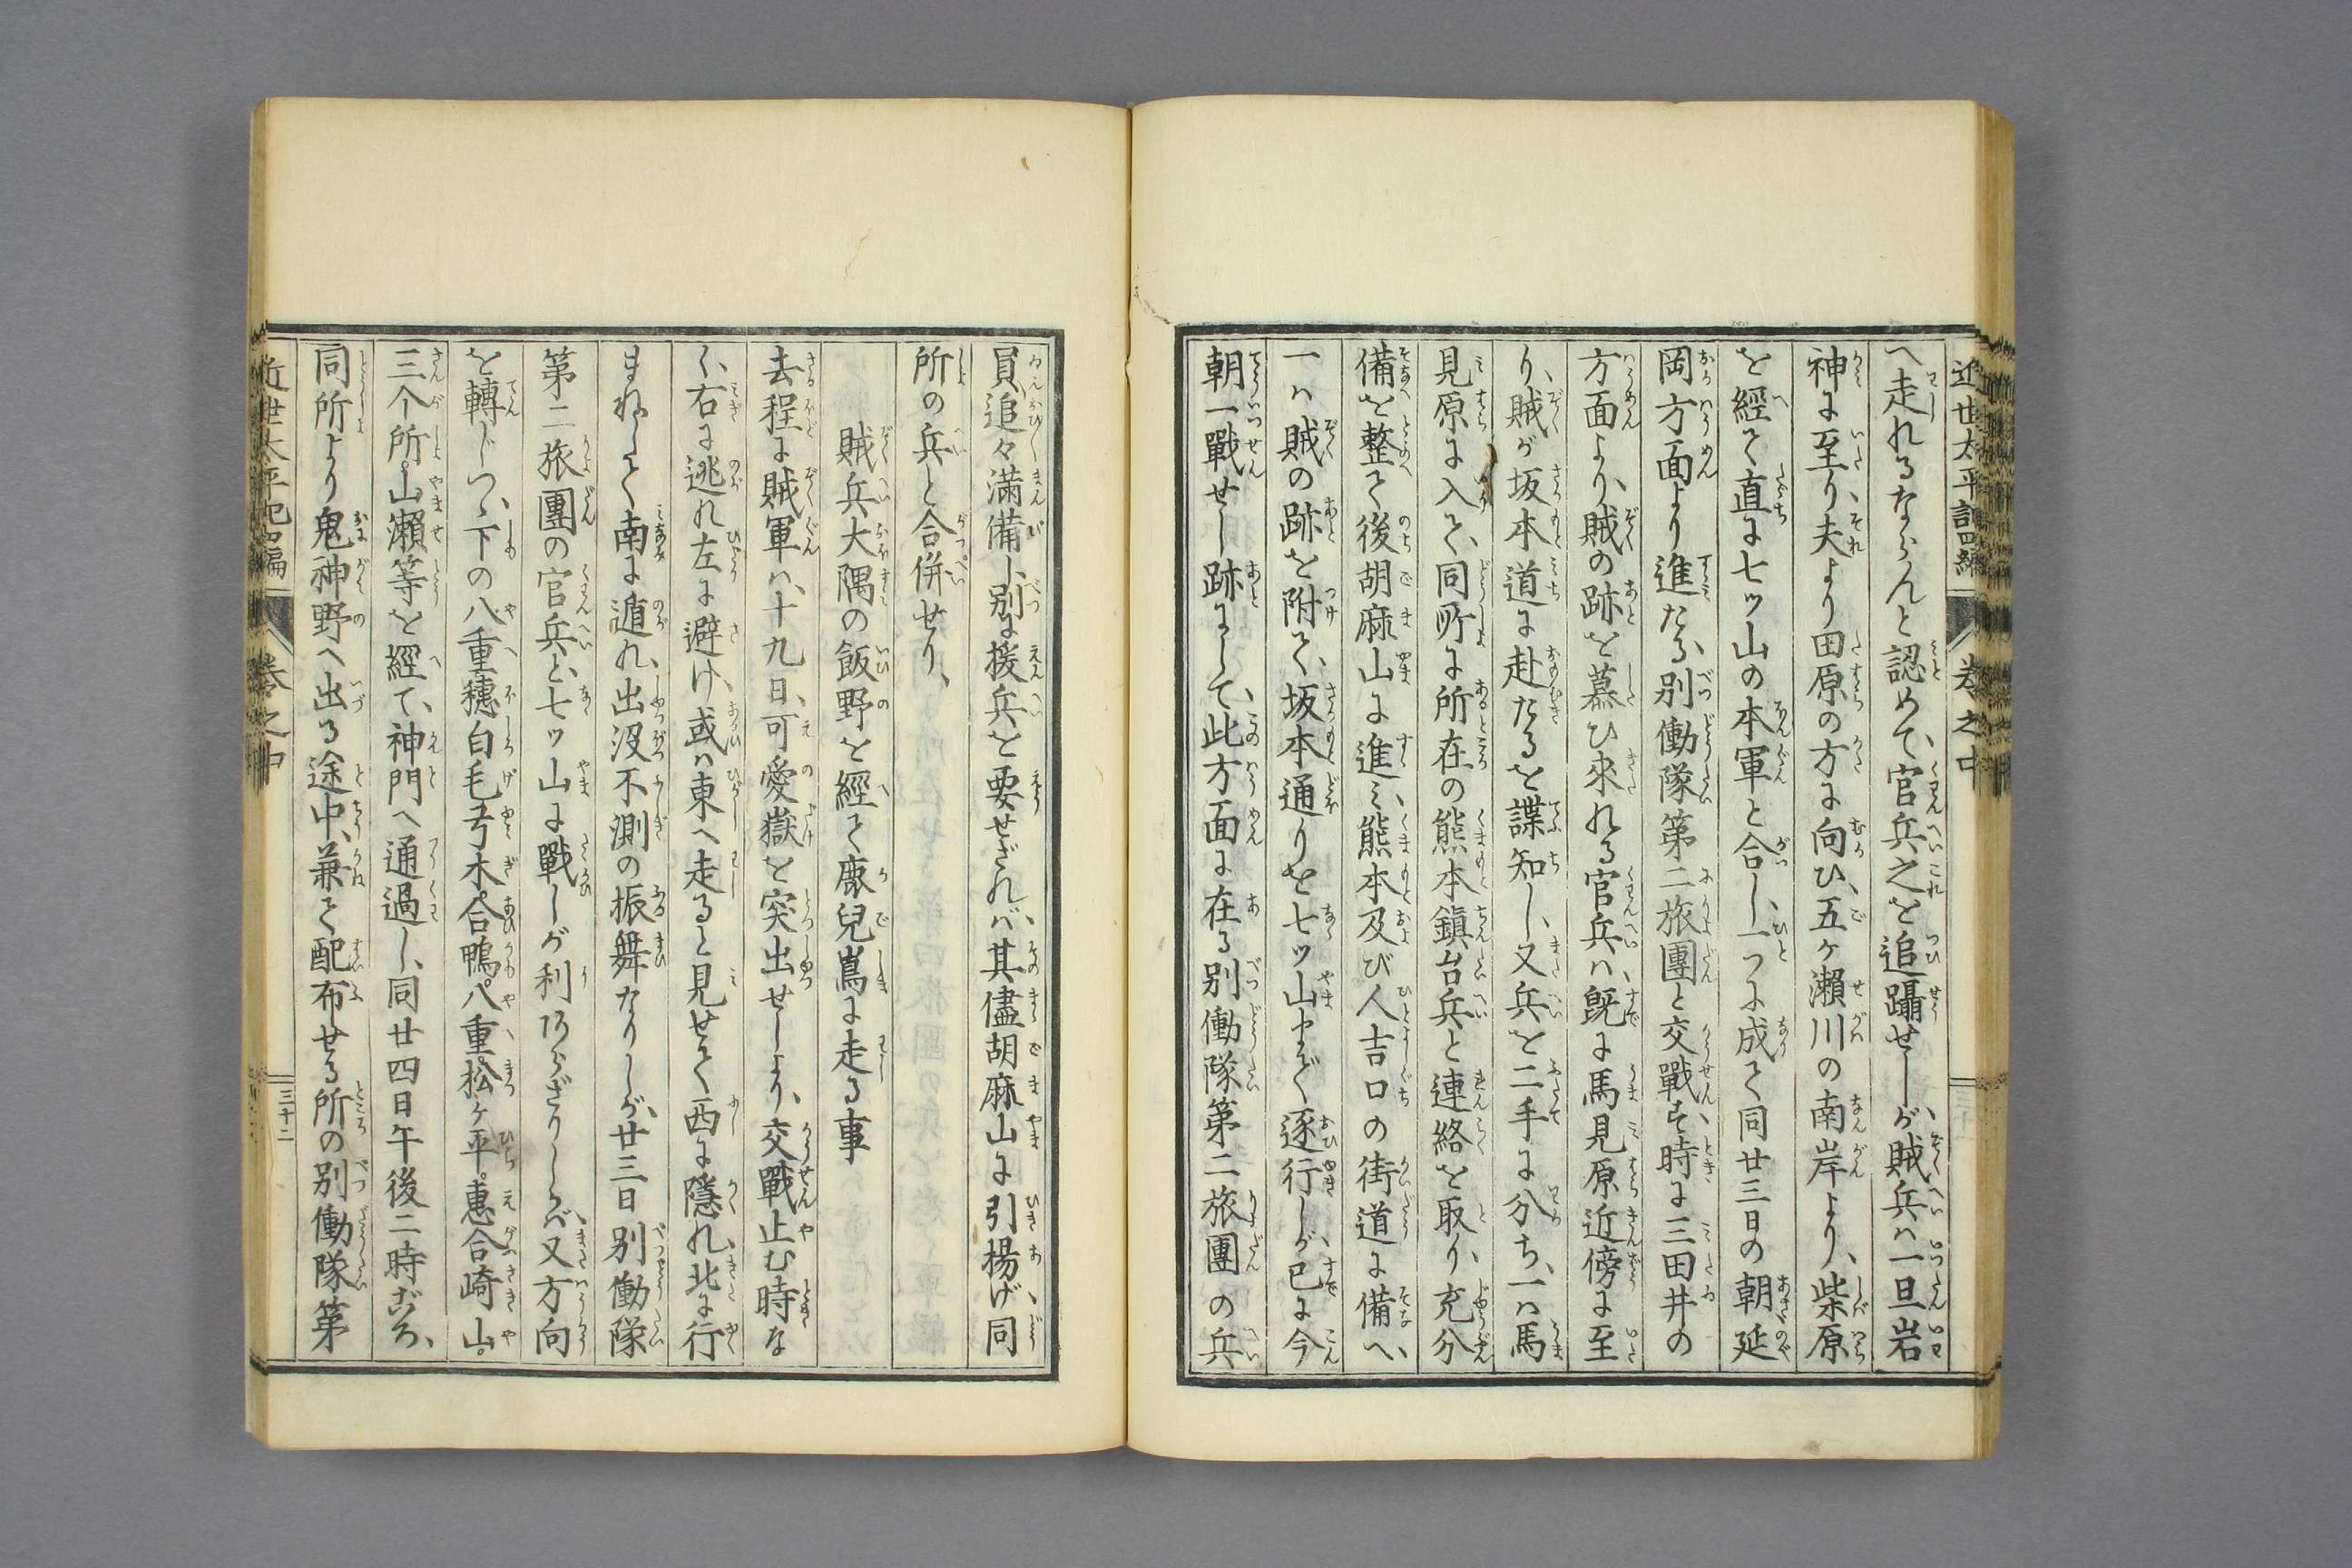 近世太平記四編 卷之中
へ走れるならんと認めて、官兵之を追躡せしが、賊兵ハ一旦岩
神に至り、夫より田原の方に向ひ、五ヶ瀬川の南岸より、柴原
を經て直に七ッ山の本軍と合し、一つに成て同廿三日の朝延
岡方面より進たる、別働隊第二旅團と交戰す、時に三田井の
方面より、賊の跡を慕ひ來れる官兵ハ、既に馬見原近傍に至
り、賊が坂本道に赴たるを諜知し、又兵を二手に分ち、一ハ馬
見原に入て、同所に所在の熊本鎭台兵と連絡を取り、充分
備を整て後胡麻山に進ミ、熊本及び人吉口の街道に備へ、
一ハ賊の跡を附て、坂本通りを七ッ山まで逐行しが、已に今
朝一戰せし跡にして、此方面に在る別働隊第二旅團の兵
員、追々滿備し、別に援兵を要せざれバ、其儘胡麻山に引揚げ、同
所の兵と合併せり、
賊兵大隅の飯野を經て鹿兒嶌に走る事
去程に賊軍ハ、十九日、可愛嶽を突出せしより、交戰止む時な
く、右に逃れ左に避け、或ハ東へ走ると見せて西に隱れ、北に行
まねして南に遁れ、出沒不測の振舞なりしが、廿三日別働隊
第二旅團の官兵と、七ッ山に戰しが利あらざりしかバ、又方向
を轉じつゝ、下の八重穗白毛弓木。合鴨。八重。松ヶ平。惠合崎山。
三个所。山瀬等を經て、神門へ通過し、同廿四日午後二時ごろ、
同所より鬼神野へ出る途中、兼て配布せる所の別働隊第
近世太平記四編 卷之中 三十二